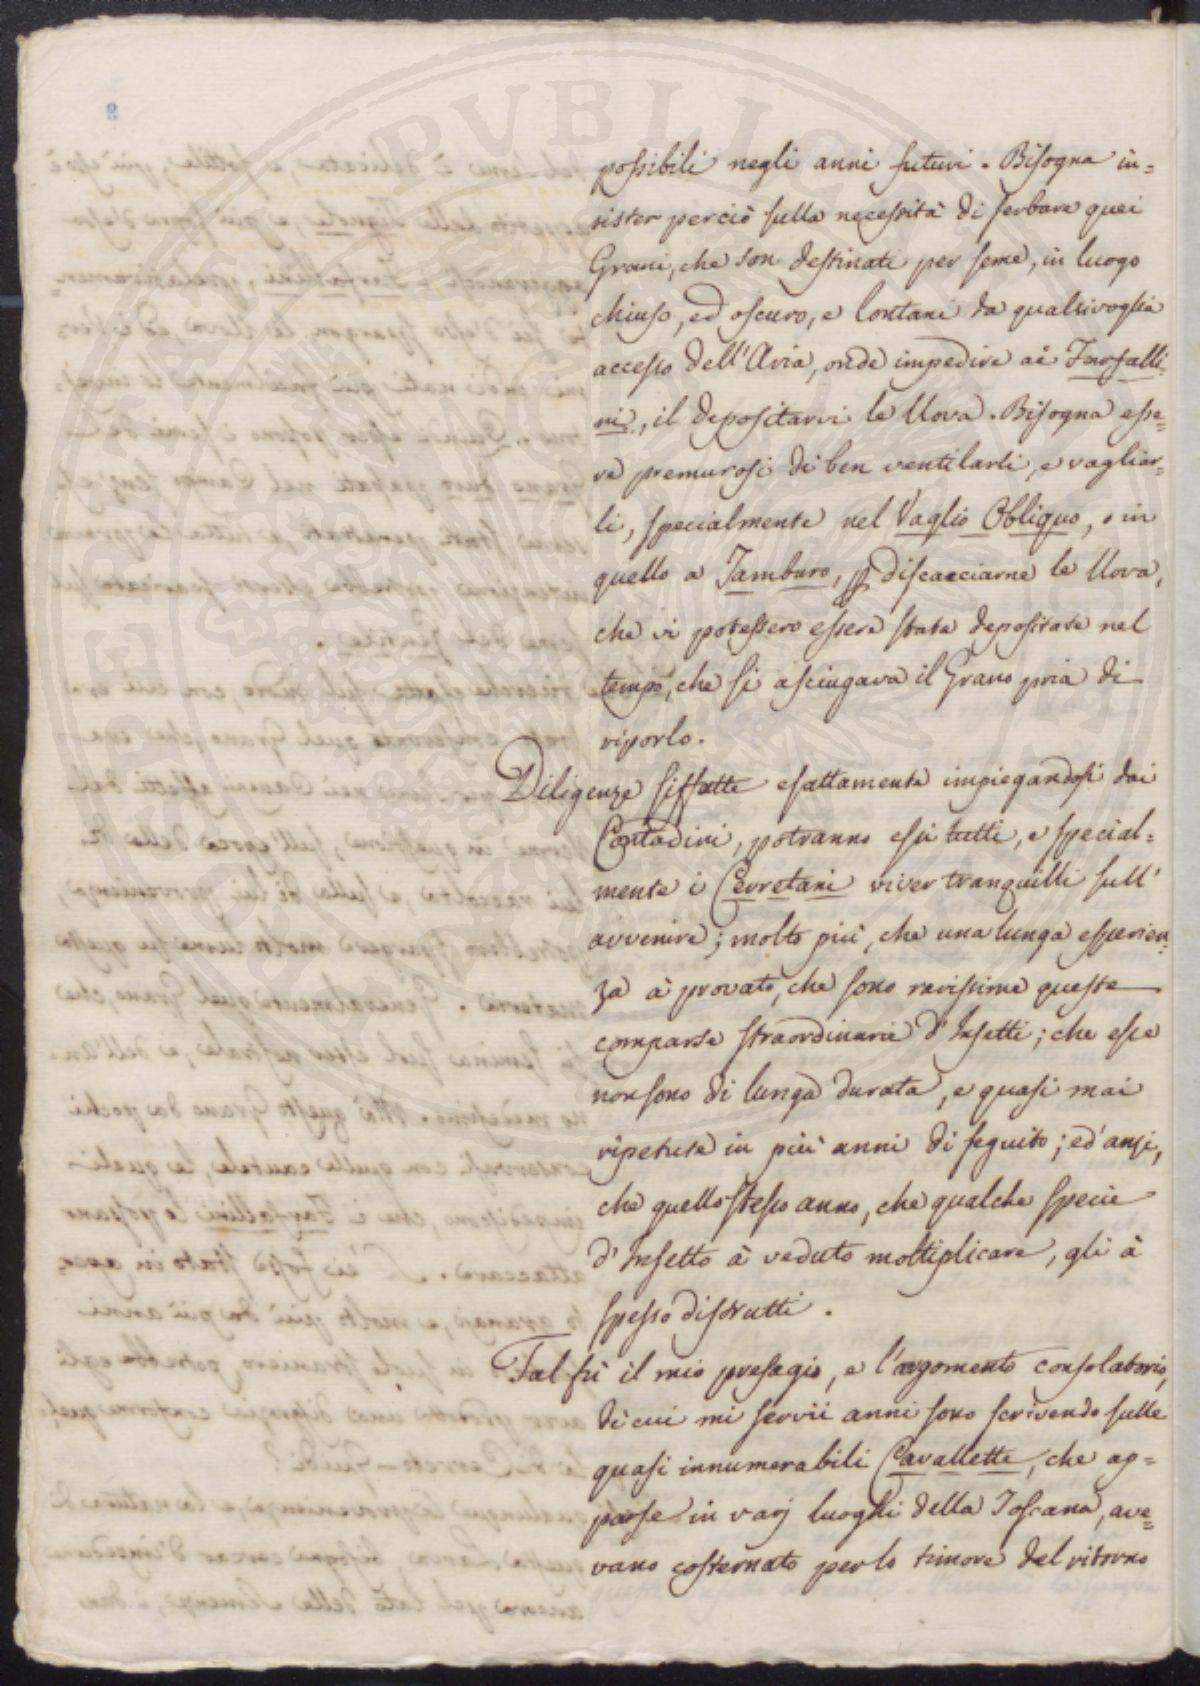 possibili negli anni futuri. Bisogna in=
sister perciò sulla necessità di serbare quei
Grani, che son destinati per seme, in luogo
chiuso, ed oscuro, e lontani da qualsivoglia
accesso dell'Aria, onde impedire ai Farfalli=
ni, il depositarvi le Uova. Bisogna esse=
re premurosi di ben ventilarli, e vagliar=
li, specialmente nel Vaglio Obliquo, o in
quello a Tamburo, p discacciarne le Uova,
che vi potessero essere state depositate nel
tempo, che si asciugava il Grano pria di
riporlo.
Diligenze siffatte esattamente impiegandosi dai
Contadini, potranno essi tutti, e special=
mente i Cerretani viver tranquilli sull'
avvenire; molto più, che una lunga esperien=
za à provato, che sono rarissime queste
comparse straordinarie d'Insetti; che esse
non sono di lunga durata, e quasi mai
ripetute in più anni di seguito; ed anzi,
che quello stesso anno, che qualche specie
d'Insetto à veduto moltiplicare, gli à
spesso distrutti.
Tal fù il mio presagio, e l'argomento consolatorio,
di cui mi servii anni sono scrivendo sulle
quasi innumerabili Cavallette, che ap=
parse in varj luoghi della Toscana, ave=
vano costernato per lo timore del ritorno